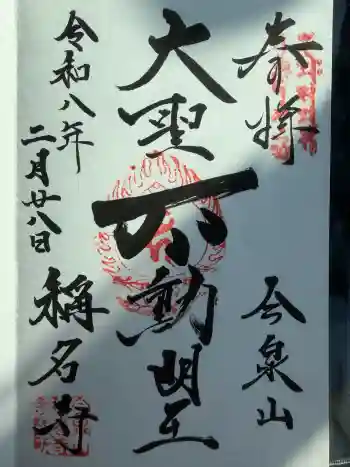 奉拝
今泉山
大聖不動明王
令和八年
二月廿八日
称名寺